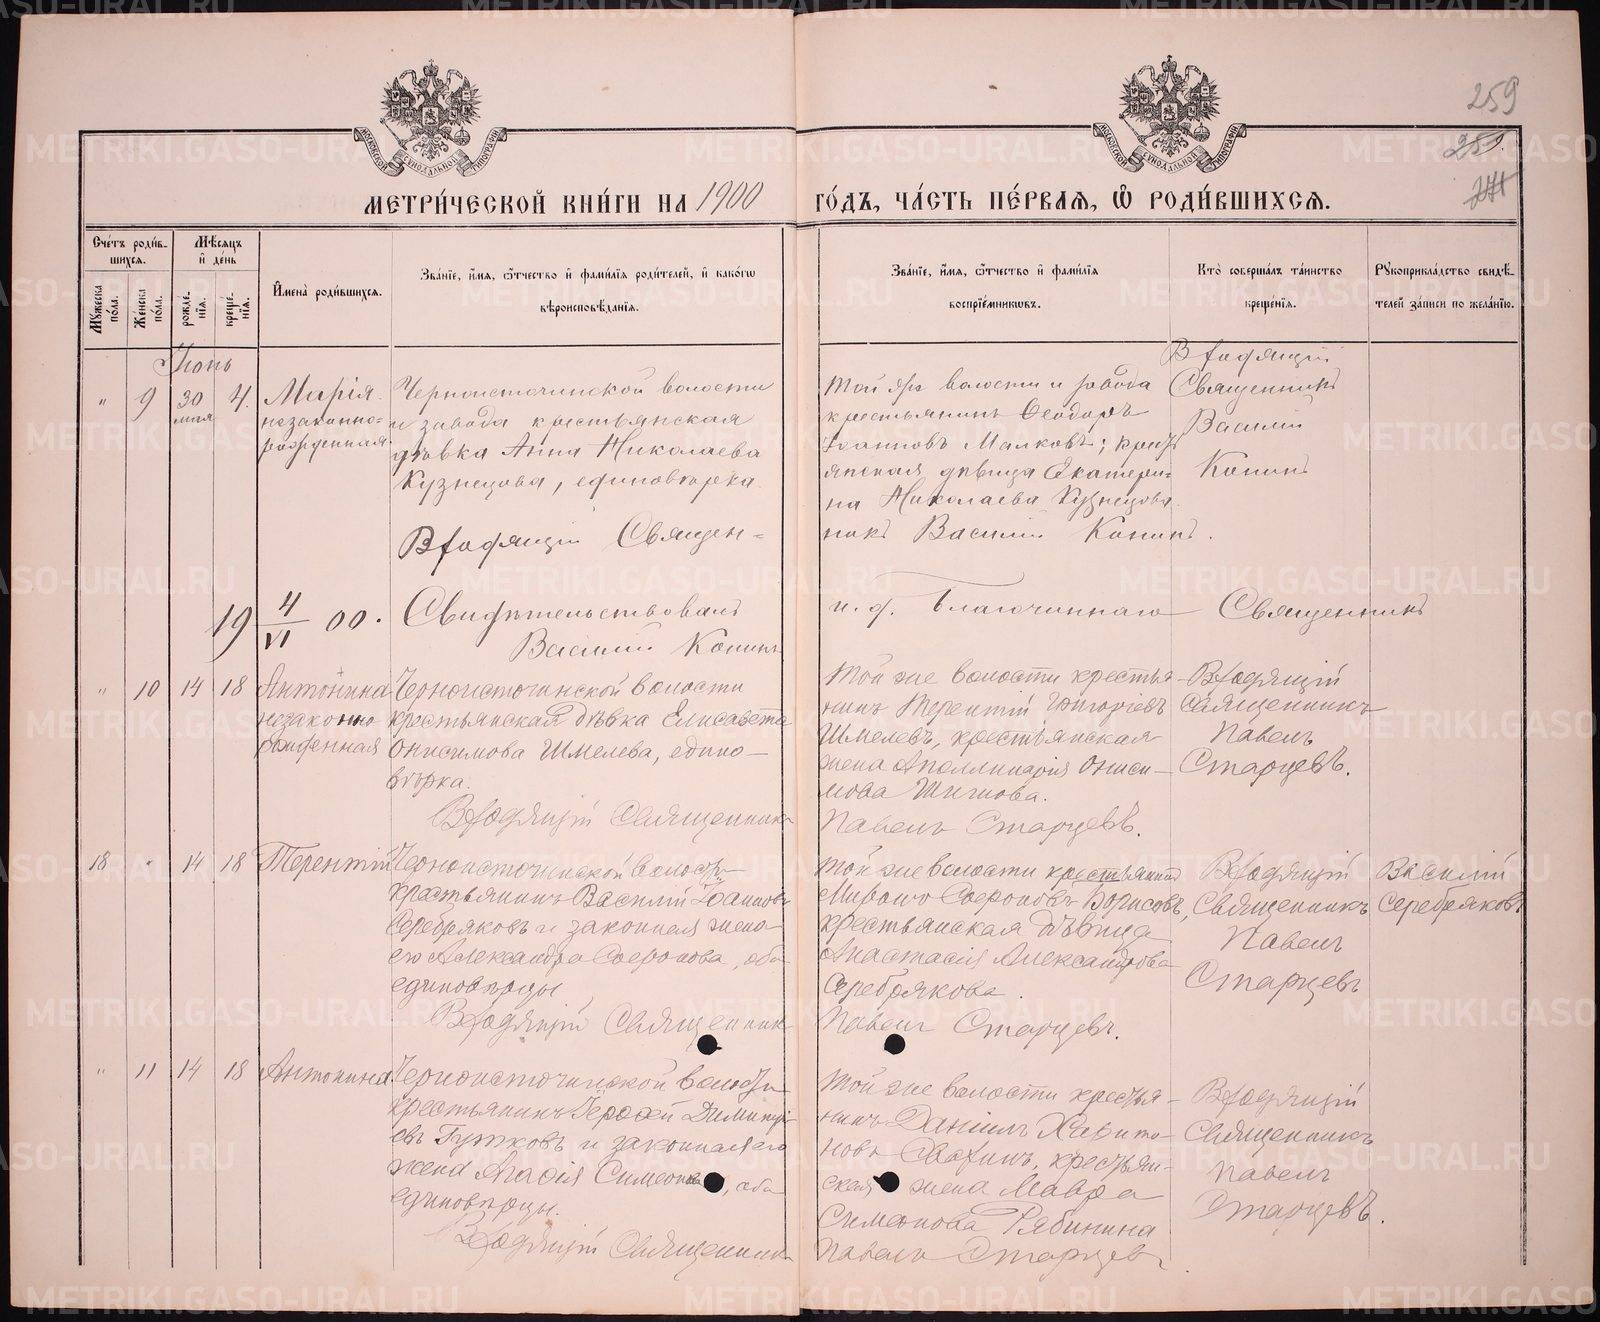 259
МОСКОВСКОЙ СѴНОДАЛЬНОЙ ТИПОГРАФІИ
МОСКОВСКОЙ СѴНОДАЛЬНОЙ ТИПОГРАФІИ
МЕТРИ́ЧЕСКОЙ КНИ́ГИ НА 1900 ГО́ДЪ, ЧА́СТЬ ПЕ́РВАѦ, Ѡ҆ РОДИ́ВШИХСѦ.
Сче́тъ роди́в-
шихсѧ.
Мѣ́сѧцъ
и҆ де́нь
Мꙋ́жеска по́ла.
Же́нска по́ла.
рожде́-
нїѧ.
креще́-
нїѧ.
И҆мена̀ роди́вшихсѧ.
Зва́нїе, и҆́мѧ, ѻ҆́тчество и҆ фами́лїѧ роди́телей, и҆ како́гѡ
вѣроисповѣ́данїѧ.
Зва́нїе, и҆́мѧ, ѻ҆́тчество и҆ фами́лїѧ
воспрїе́мникѡвъ.
Кто̀ соверша́лъ та́инство
креще́нїѧ.
Рꙋкоприкла́дство свидѣ́-
телей за́писи по жела́нїю.
Іюнь
" 9 30 мая 4.
Марія
незаконно-
рожденная
Черноисточинской волости
и завода крестьянская
дѣвка Анна Николаева
Кузнецова, единовѣрка.
Входящій Священ-
Той же волости и завода
крестьянинъ Ѳеодоръ
Іоанновъ Малковъ; крест
янская дѣвица Екатери-
на Николаева Кузнецова.
никъ Василій Конинъ.
Входящій
Священникъ
Василій
Конинъ
19 4/VI 00.
Свидѣтельствовалъ
и. д. Благочиннаго Священникъ
Василій Конинъ
" 10 14 18
Антонина
незаконно
рожденная
Черноисточинской волости
крестьянская дѣвка Елисавета
Онисимова Шмелева, едино-
вѣрка.
Входящій Священникъ
Той же волости крестья-
нинъ Терентій Григоріевъ
Шмелевъ, крестьянская
жена Аполлинарія Ониси-
мова
Павелъ Старцевъ.
Входящій
Священникъ
Павелъ
Старцевъ.
18 " 14 18
Терентій
Черноисточинской волости
крестьянинъ Василій Іоанновъ
Серебряковъ и законная жена
его Александра Софронова, оба
единовѣрцы
Входящій Священникъ
Той же волости крестьянинъ
Миронъ Софроновъ Борисовъ,
крестьянская дѣвица
Анастасія Александрова
Серебрякова.
Павелъ Старцевъ.
Входящій
Священникъ
Павелъ
Старцевъ
Василій
Серебряковъ
" 11 14 18
Антонина
Черноисточинской волости
крестьянинъ Іероѳей Димитрі
евъ Гужковъ и законная его
жена Агафія Симеонова, оба
единовѣрцы.
Входящій Священникъ
Той же волости крестья-
нинъ Даніилъ Харито-
новъ крестьян-
ская жена Мавра
Симеонова Рябинина
Павелъ Старцевъ
Входящій
Священникъ
Павелъ
Старцевъ.
METRIKI.GASO-URAL.RU